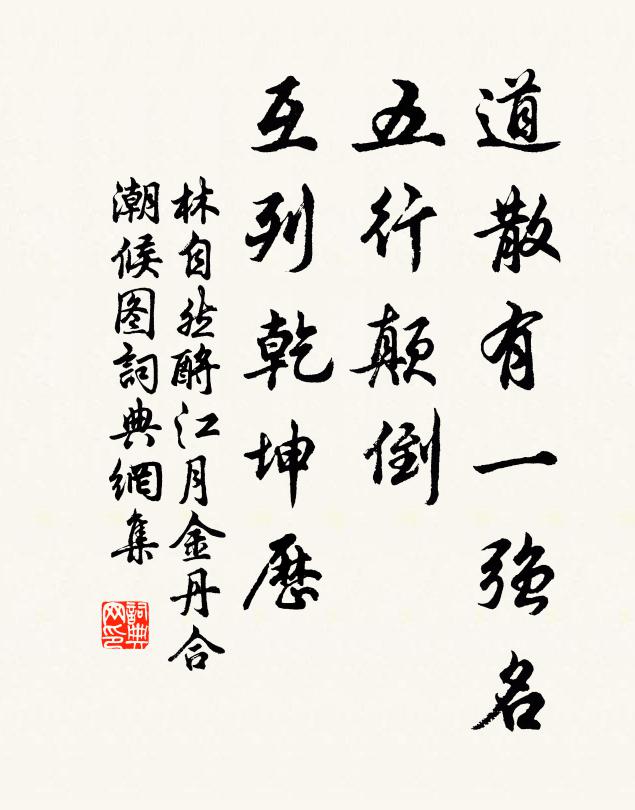 道散有一強名
五行顛倒
互列乾坤歷
林自然酹江月金丹合
潮候图詞典網集
詞典網印